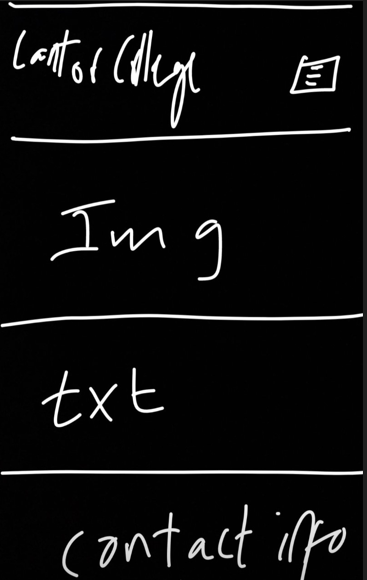 Cantor College
Img
txt
contact info